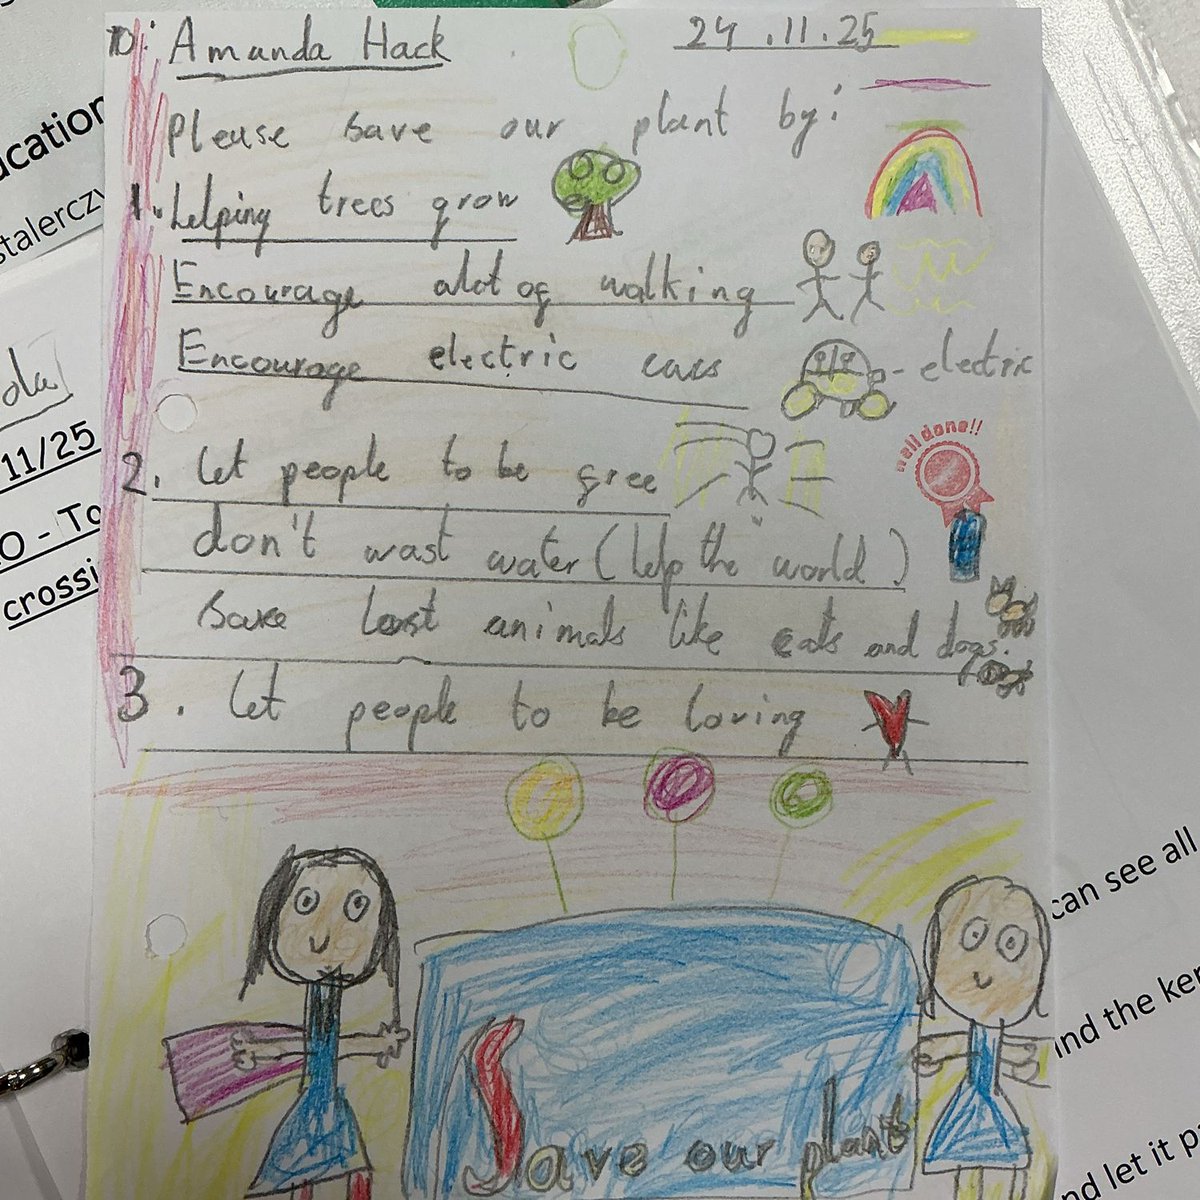 To: Amanda Hack 24.11.25
Please save our plant by:
1. Helping trees grow
Encourage alot of walking
Encourage electric cars - electric
well done!!
2. Let people to be free
don't wast water (help the world)
Save lost animals like cats and dogs.
3. Let people to be loving
Save our plant
ucation
stalerczy
da
11/25
O - To
crossi
can see all
and the ker
nd let it pa